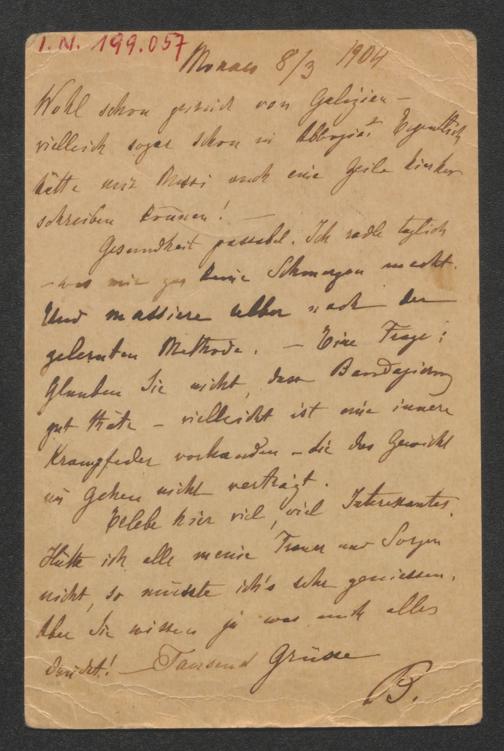 I. N. 199.057
Monaco 8/3 1904
Wohl schon zurück von Galizien –
vielleicht sogar schon in Abbazia? Eigentlich
hätte mir auch eine Zeile hierher
schreiben können! –
Gesundheit passabel. Ich radle täglich
– was mir gar keine Schmerzen macht.
Und massiere selber nach der
gelernten Methode. – Eine Frage:
Glauben Sie nicht, dass Bandagierung
gut thäte – vielleicht ist eine innere
Krampfader vorhanden – die das Gewicht
im Gehen nicht verträgt.
Erlebe hier viel, viel Interessantes.
Hätte ich alle meine Trauer und Sorgen
nicht, so müsste ich's sehr geniessen.
Aber Sie wissen ja was mich alles
drückt! – Tausend Grüsse
B.